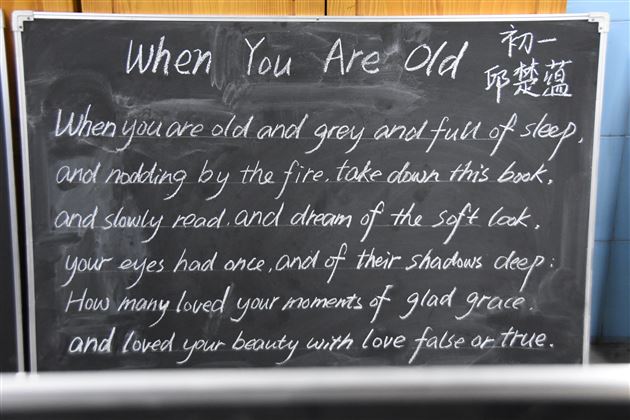 When You Are Old
初一
邱楚蕴
When you are old and grey and full of sleep,
and nodding by the fire. take down this book,
and slowly read. and dream of the soft look,
your eyes had once, and of their shadows deep:
How many loved your moments of glad grace.
and loved your beauty with love false or true.